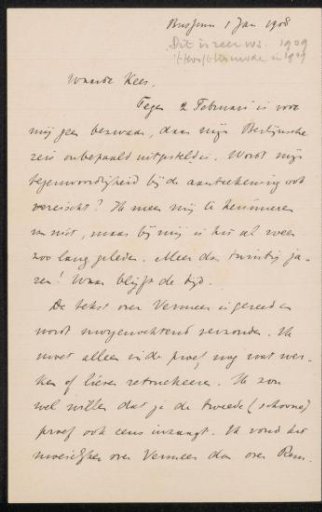 Bussum 1 Jan 1908
Dit is zeer ws. 1909
in 1909
Waarde Kees,
Tegen 2 Februari is voor
mij geen bezwaar, daar mijn Berlijnsche
reis onbepaald uitgesteld is. Wordt mijn
tegenwoordigheid bij de aanteekening ook
vereischt? Ik meen mij te herinneren
van niet, maar bij mij is het al weer
zoo lang geleden. Meer dan twintig ja-
ren! Waar blijft de tijd.
De tekst over Vermeer is gereed en
wordt morgenochtend verzonden. Ik
moet alleen in de proef nog wat wer-
ken of liever retoucheeren. Ik zou
wel willen dat je de tweede (schoone)
proef ook eens inzaagt. Ik vond het
moeielijker over Vermeer dan over Rem.